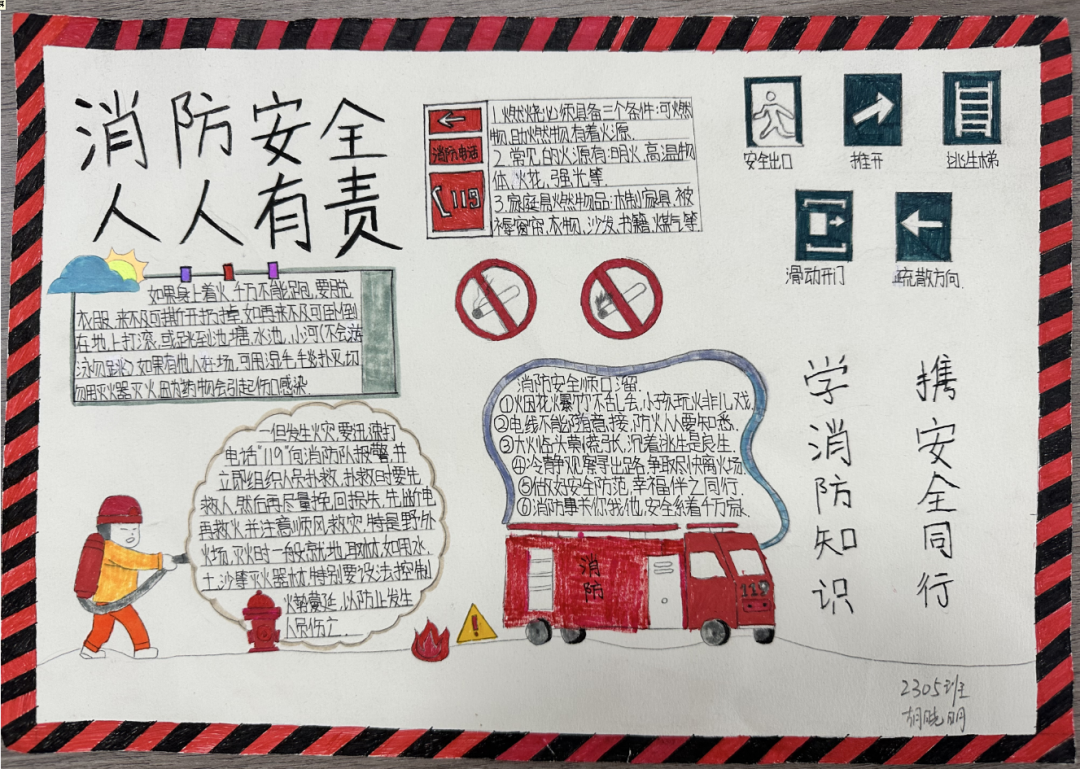 消防安全
人人有责
消防电话
119
1.燃烧必须具备三个条件:可燃
物,助燃物,有着火源.
2.常见的火源有:明火,高温物
体,火花,强光等.
3.家庭易燃物品:木制家具,被
褥窗帘,衣物,沙发,书籍,煤气等
安全出口
推开
逃生梯
滑动开门
疏散方向.
如果身上着火,千万不能跑,要脱
衣服,来不及可撕开扔掉,如再来不及可卧倒
在地上打滚,或跳到池塘,水池,小河(不会游
泳勿跳)如果有他人在场,可用湿毛毯扑灭,切
勿用灭火器灭火,因为药物会引起伤口感染.
一但发生火灾,要迅速打
电话“119”向消防队报警,并
立即组织人员扑救,扑救时要先
救人,然后再尽量挽回损失,先断电
再救火,并注意顺风救灾,特是野外
火场,灭火时一般就地取材,如用水
土,沙等灭火器材,特别要设法控制
火势蔓延,以防止发生
人员伤亡.
消防安全顺口溜.
①烟花火爆竹不乱丢,小孩玩火非儿戏.
②电线不能随意接,防火人人要知悉.
③大火临头莫慌张,沉着逃生是良生.
④冷静观察寻出路,争取尽快离火场.
⑤做好安全防范,幸福伴之同行.
⑥消防事关你我他,安全系着千万家.
消防
119
学消防知识
携安全同行
2305班
胡晓明